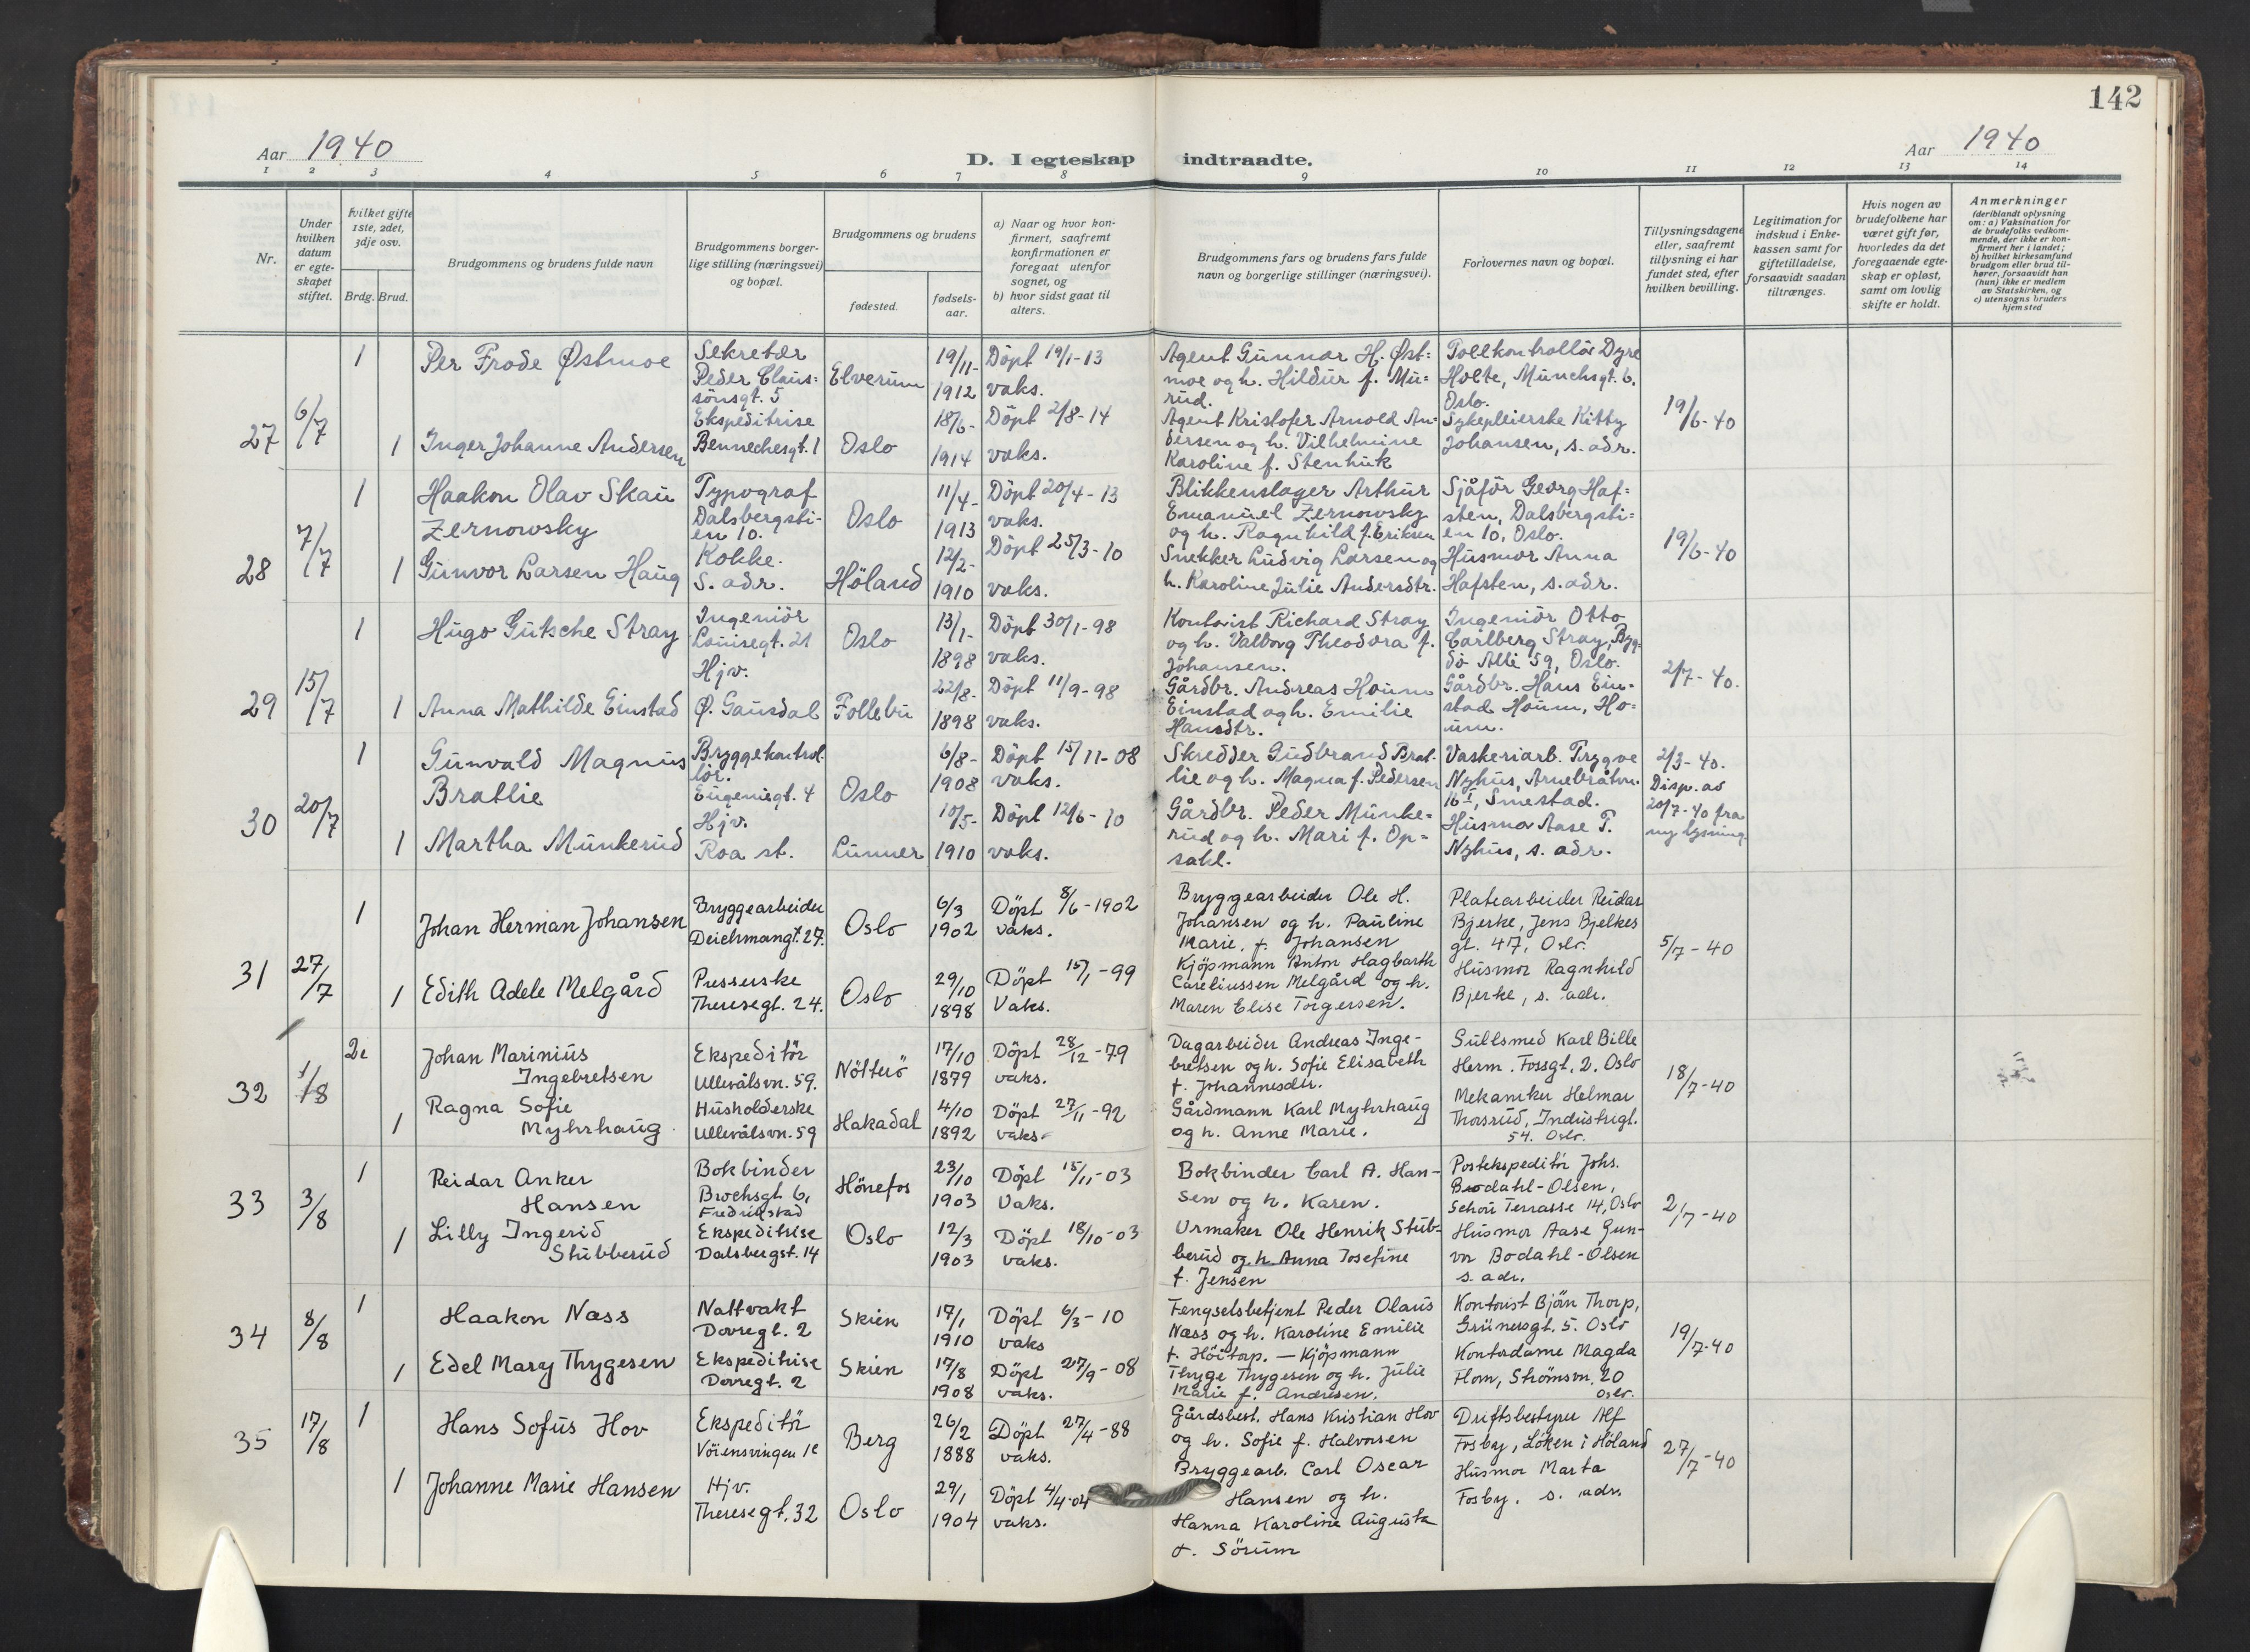 142
Aar 1940
D. I egteskap indtraadte.
Aar 1940
1 2 3 4 5 6 7 8 9 10 11 12 13 14
Nr.
Under hvilken datum er egteskapet stiftet.
hvilket gifte 1ste, 2det, 3dje osv.
Brdg. Brud.
Brudgommens og brudens fulde navn
Brudgommens borgerlige stilling (næringsvei) og bopæl.
Brudgommens og brudens
fødested.
fødselsaar.
a) Naar og hvor konfirmert, saafremt konfirmationen er foregaat utenfor sognet, og
b) hvor sidst gaat til alters.
Brudgommens fars og brudens fars fulde navn og borgerlige stillinger (næringsvei).
Forlovernes navn og bopæl.
Tillysningsdagene eller, saafremt tillysning ei har fundet sted, efter hvilken bevilling.
Legitimation for indskud i Enkekassen samt for giftetilladelse, forsaavidt saadan tiltrænges.
Hvis nogen av brudefolkene har været gift før, hvorledes da det foregaaende egteskap er opløst, samt om lovlig skifte er holdt.
Anmerkninger
(deriblandt oplysning om: a) Vaksination for de brudefolks vedkommende, der ikke er konfirmert her i landet; b) hvilket kirkesamfund brudgom eller brud tilhører, forsaavidt han (hun) ikke er medlem av Statskirken, og c) utensogns bruders hjemsted
27 6/7
1 Per Frode Østmoe
Sekretær
Peder Claus=
sönsgt. 5
Elverum
19/11-
1912
Döpt 19/1-13
vaks.
Agent Gunnar H. Øst=
moe og h. Hildur f. Mu=
rud.
Tollkontrollör Dyre
Holte, Munchsgt. 6.
Oslo.
19/6-40
1 Inger Johanne Andersen
Ekspeditrise
Bennechesgt. 1
Oslo
18/6-
1914
Döpt 2/8-14
vaks.
Agent Kristofer Arnold An=
dersen og h. Vilhelmine
Karoline f. Stenhuk
Sykepleierske Kitty
Johansen, s. adr.
28 7/7
1 Haakon Olav Skau
Zernowsky
Typograf
Dalsbergsti-
en 10.
Oslo
11/4-
1913
Döpt 20/4-13
vaks.
Blikkenslager Arthur
Emanuel Zernowsky
og h. Ragnhild f. Eriksen
Sjåför Georg Haf=
sten, Dalsbergsti=
en 10, Oslo.
19/6-40
1 Gunvor Larsen Haug
Kokke.
S. adr.
Höland
12/2-
1910
Döpt 25/3-10
vaks.
Snekker Ludvig Larsen og
h. Karoline Julie Andersdtr.
Husmor Anna
Hafsten, s. adr.
29 15/7
1 Hugo Gutsche Stray
Ingeniör
Louisegt. 21
Oslo
13/1-
1898
Döpt 30/1-98
vaks.
Kontorist Richard Stray
og h. Valborg Theodora f.
Johansen.
Ingeniör Otto
Carlberg Stray, Byg=
dö Allé 59, Oslo.
2/7-40.
1 Anna Mathilde Einstad
Hjv.
Ø. Gausdal
Follebu
22/8-
1898
Döpt 11/9-98
vaks.
Gårdbr. Andreas Houm
Einstad og h. Emilie
Hansdtr.
Gårdbr. Hans Ein-
stad Houm, Ho=
um.
30 20/7
1 Gunvald Magnus
Bratlie
Bryggekontrol-
lör.
Eugeniegt. 4
Oslo
6/8-
1908
Döpt 15/11-08
vaks.
Skredder Gudbrand Brat-
lie og h. Magna f. Pedersen
Vaskeriarb. Trygve
Nyhus, Arnebråtvn.
16 I, Smestad.
2/3-40.
Disp. av
20/7-40 fra
ny lysning
1 Martha Munkerud
Hjv.
Roa st.
Lunner
10/5-
1910
Döpt 12/6-10
vaks.
Gårdbr. Peder Munke=
rud og h. Mari f. Op=
sahl.
Husmor Aase T.
Nyhus, s. adr.
31 27/7
1 Johan Herman Johansen
Bryggearbeider
Deichmangt. 27.
Oslo
6/3
1902
Döpt 8/6-1902
vaks.
Bryggearbeider Ole H.
Johansen og h. Pauline
Marie, f. Johansen
Platearbeider Reidar
Bjerke, Jens Bjelkes
gt. 47, Oslo.
5/7-40
1 Edith Adele Melgård
Presserske
Theresegt. 24.
Oslo
29/10
1898
Döpt 15/1-99
Vaks.
Kjöpmann Anton Hagbarth
Careliussen Melgård og h.
Maren Elise Torgersen.
Husmor Ragnhild
Bjerke, s. adr.
32 1/8
2e Johan Marinius
Ingebretsen
Ekspeditör
Ullevålsvn. 59.
Nötterö
17/10
1879
Döpt 28/12-79
vaks.
Dagarbeider Andreas Inge-
bretsen og h. Sofie Elisabeth
f. Johannesdtr.
Gullsmed Karl Bille
Herm. Fossgt. 2. Oslo
18/7-40
1 Ragna Sofie
Myhrhaug.
Husholderske
Ullevålsvn. 59
Hakadal
4/10
1892
Döpt 27/11-92
vaks.
Gårdmann Karl Myhrhaug
og h. Anne Marie.
Mekaniker Helmar
Thorsrud, Industrigt.
54. Oslo.
33 3/8
1 Reidar Anker
Hansen
Bokbinder
Brochsgt 6,
Fredrikstad
Hönefos
23/10
1903
Döpt 15/11-03
Vaks.
Bokbinder Carl A. Han-
sen og h. Karen.
Postekspeditör Johs.
Bodahl-Olsen,
Schou Terrasse 14, Oslo
2/7-40
1 Lilly Ingerid
Stubberud
Ekspeditrise
Dalsbergst. 14
Oslo
12/3
1903
Döpt 18/10-03
vaks.
Urmaker Ole Henrik Stub-
berud og h. Anna Josefine
f. Jensen
Husmor Aase Gun-
vor Bodahl-Olsen
s. adr.
34 8/8
1 Haakon Næss
Nattvakt
Dovregt. 2
Skien
17/1
1910
Döpt 6/3-10
vaks
Fengselsbetjent Peder Olaus
Næss og h. Karoline Emilie
f. Höitorp. — Kjöpmann
Kontorist Björn Thorp,
Grünersgt. 5. Oslo
19/7-40
1 Edel Mary Thygesen
Ekspeditrise
Dovregt. 2
Skien
17/8
1908
Döpt 27/9-08
vaks.
Thyge Thygesen og h. Julie
Marie f. Andresen.
Kontordame Magda
Flom, Strömsvn. 20
Oslo.
35 17/8
1 Hans Sofus Hov
Ekspeditör
Vöiensvingen 1c
Berg
26/2
1888
Döpt 27/4-88
vaks.
Gårdsbest. Hans Kristian Hov
og h. Sofie f. Halvorsen
Driftsbestyrer Alf
Fosby, Löken i Höland
27/7-40
1 Johanne Marie Hansen
Hjv.
Theresegt. 32
Oslo
29/1
1904
Döpt 4/4-04
vaks.
Bryggearb. Carl Oscar
Hansen og h.
Hanna Karoline Augusta
f. Sörum
Husmor Marta
Fosby. s. adr.